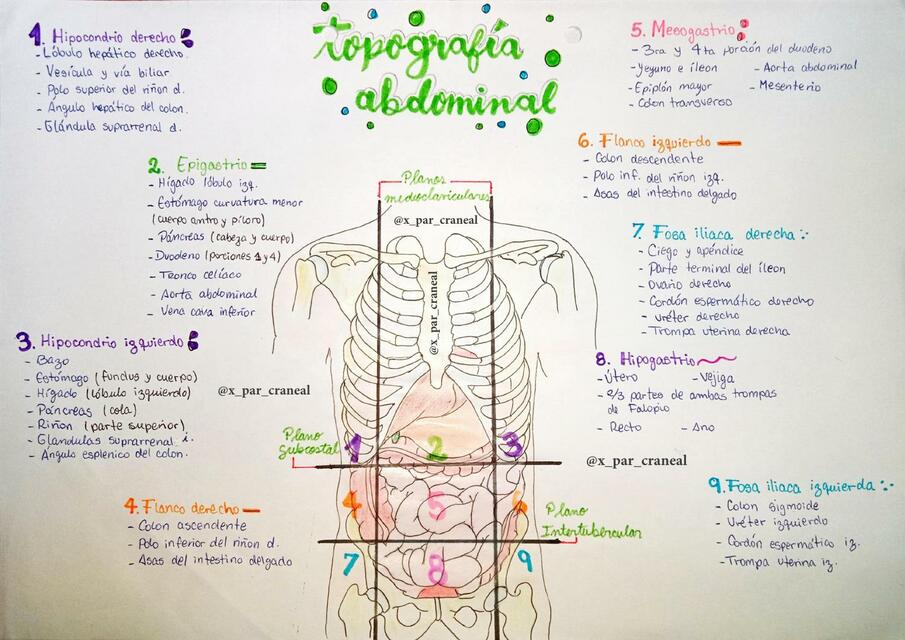 topografía
abdominal
1. Hipocondrio derecho
- Lóbulo hepático derecho
- Vesícula y vía biliar
- Polo superior del riñon d.
- Ángulo hepático del colon.
- Glándula suprarrenal d.
2. Epigastrio
- Hígado lóbulo izq.
- Estómago curvatura menor
(cuerpo antro y píloro)
- Páncreas (cabeza y cuerpo)
- Duodeno (porciones 1 y 4)
- Tronco celíaco
- Aorta abdominal
- Vena cava inferior
3. Hipocondrio izquierdo
- Bazo
- Estómago (fundus y cuerpo)
- Hígado (lóbulo izquierdo)
- Páncreas (cola)
- Riñon (parte superior)
- Glandulas suprarrenal i.
- Angulo esplenico del colon.
4. Flanco derecho
- Colon ascendente
- Polo inferior del riñon d.
- Asas del intestino delgado
5. Mesogastrio
- 3ra y 4ta porción del duodeno
- Yeyuno e íleon - Aorta abdominal
- Epiplón mayor - Mesenterio
- Colon transverso
6. Flanco izquierdo
- Colon descendente
- Polo inf. del riñon izq.
- Asas del intestino delgado
7. Fosa iliaca derecha
- Ciego y apéndice
- Parte terminal del íleon
- Ovario derecho
- Cordón espermático derecho
- Uréter derecho
- Trompa uterina derecha
8. Hipogastrio
- Útero - Vejiga
- 2/3 partes de ambas trompas
de Falopio
- Recto - Ano
9. Fosa iliaca izquierda
- Colon sigmoide
- Uréter izquierdo
- Cordón espermático iz.
- Trompa uterina iz.
Planos
medioclaviculares
@x_par_craneal
@x_par_craneal
@x_par_craneal
@x_par_craneal
Plano
Subcostal
1 2 3
4 5 6
Plano
Intertubercular
7 8 9